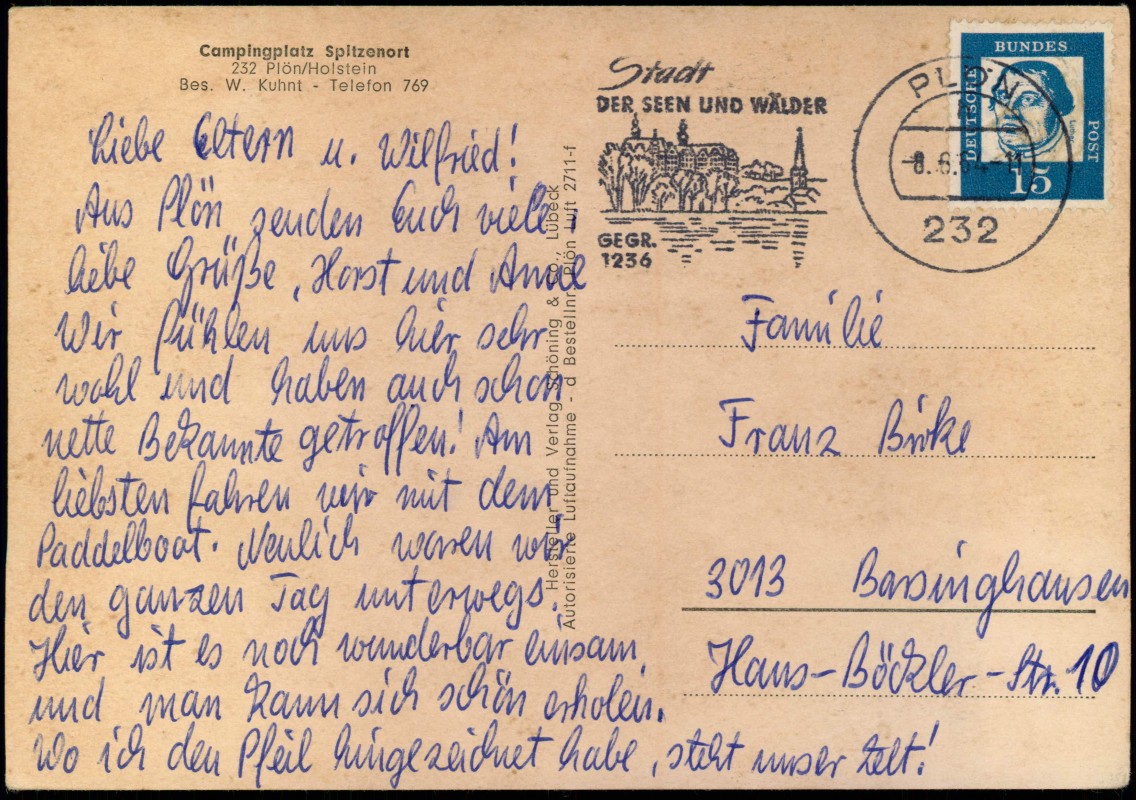 Campingplatz Spitzenort
232 Plön/Holstein
Bes. W. Kuhnt - Telefon 769
Liebe Eltern u. Wilfried!
Aus Plön senden Euch viele
liebe Grüße, Horst und Anne
Wir fühlen uns hier sehr
wohl und haben auch schon
nette Bekannte getroffen! Am
liebsten fahren wir mit dem
Paddelboot. Neulich waren wir
den ganzen Tag unterwegs.
Hier ist es noch wunderbar einsam,
und man kann sich schön erholen.
Wo ich den Pfeil hingezeichnet habe, steht unser Zelt!
Hersteller und Verlag Schöning & Co., Lübeck
Autorisierte Luftaufnahme - d Bestellnr. Plön Luft 2711-f
Stadt
DER SEEN UND WÄLDER
GEGR.
1236
PLÖN
-8.6.64-11
232
DEUTSCHE
BUNDES
POST
15
Familie
Franz Birke
3013 Barsinghausen
Hans-Böckler-Str. 10